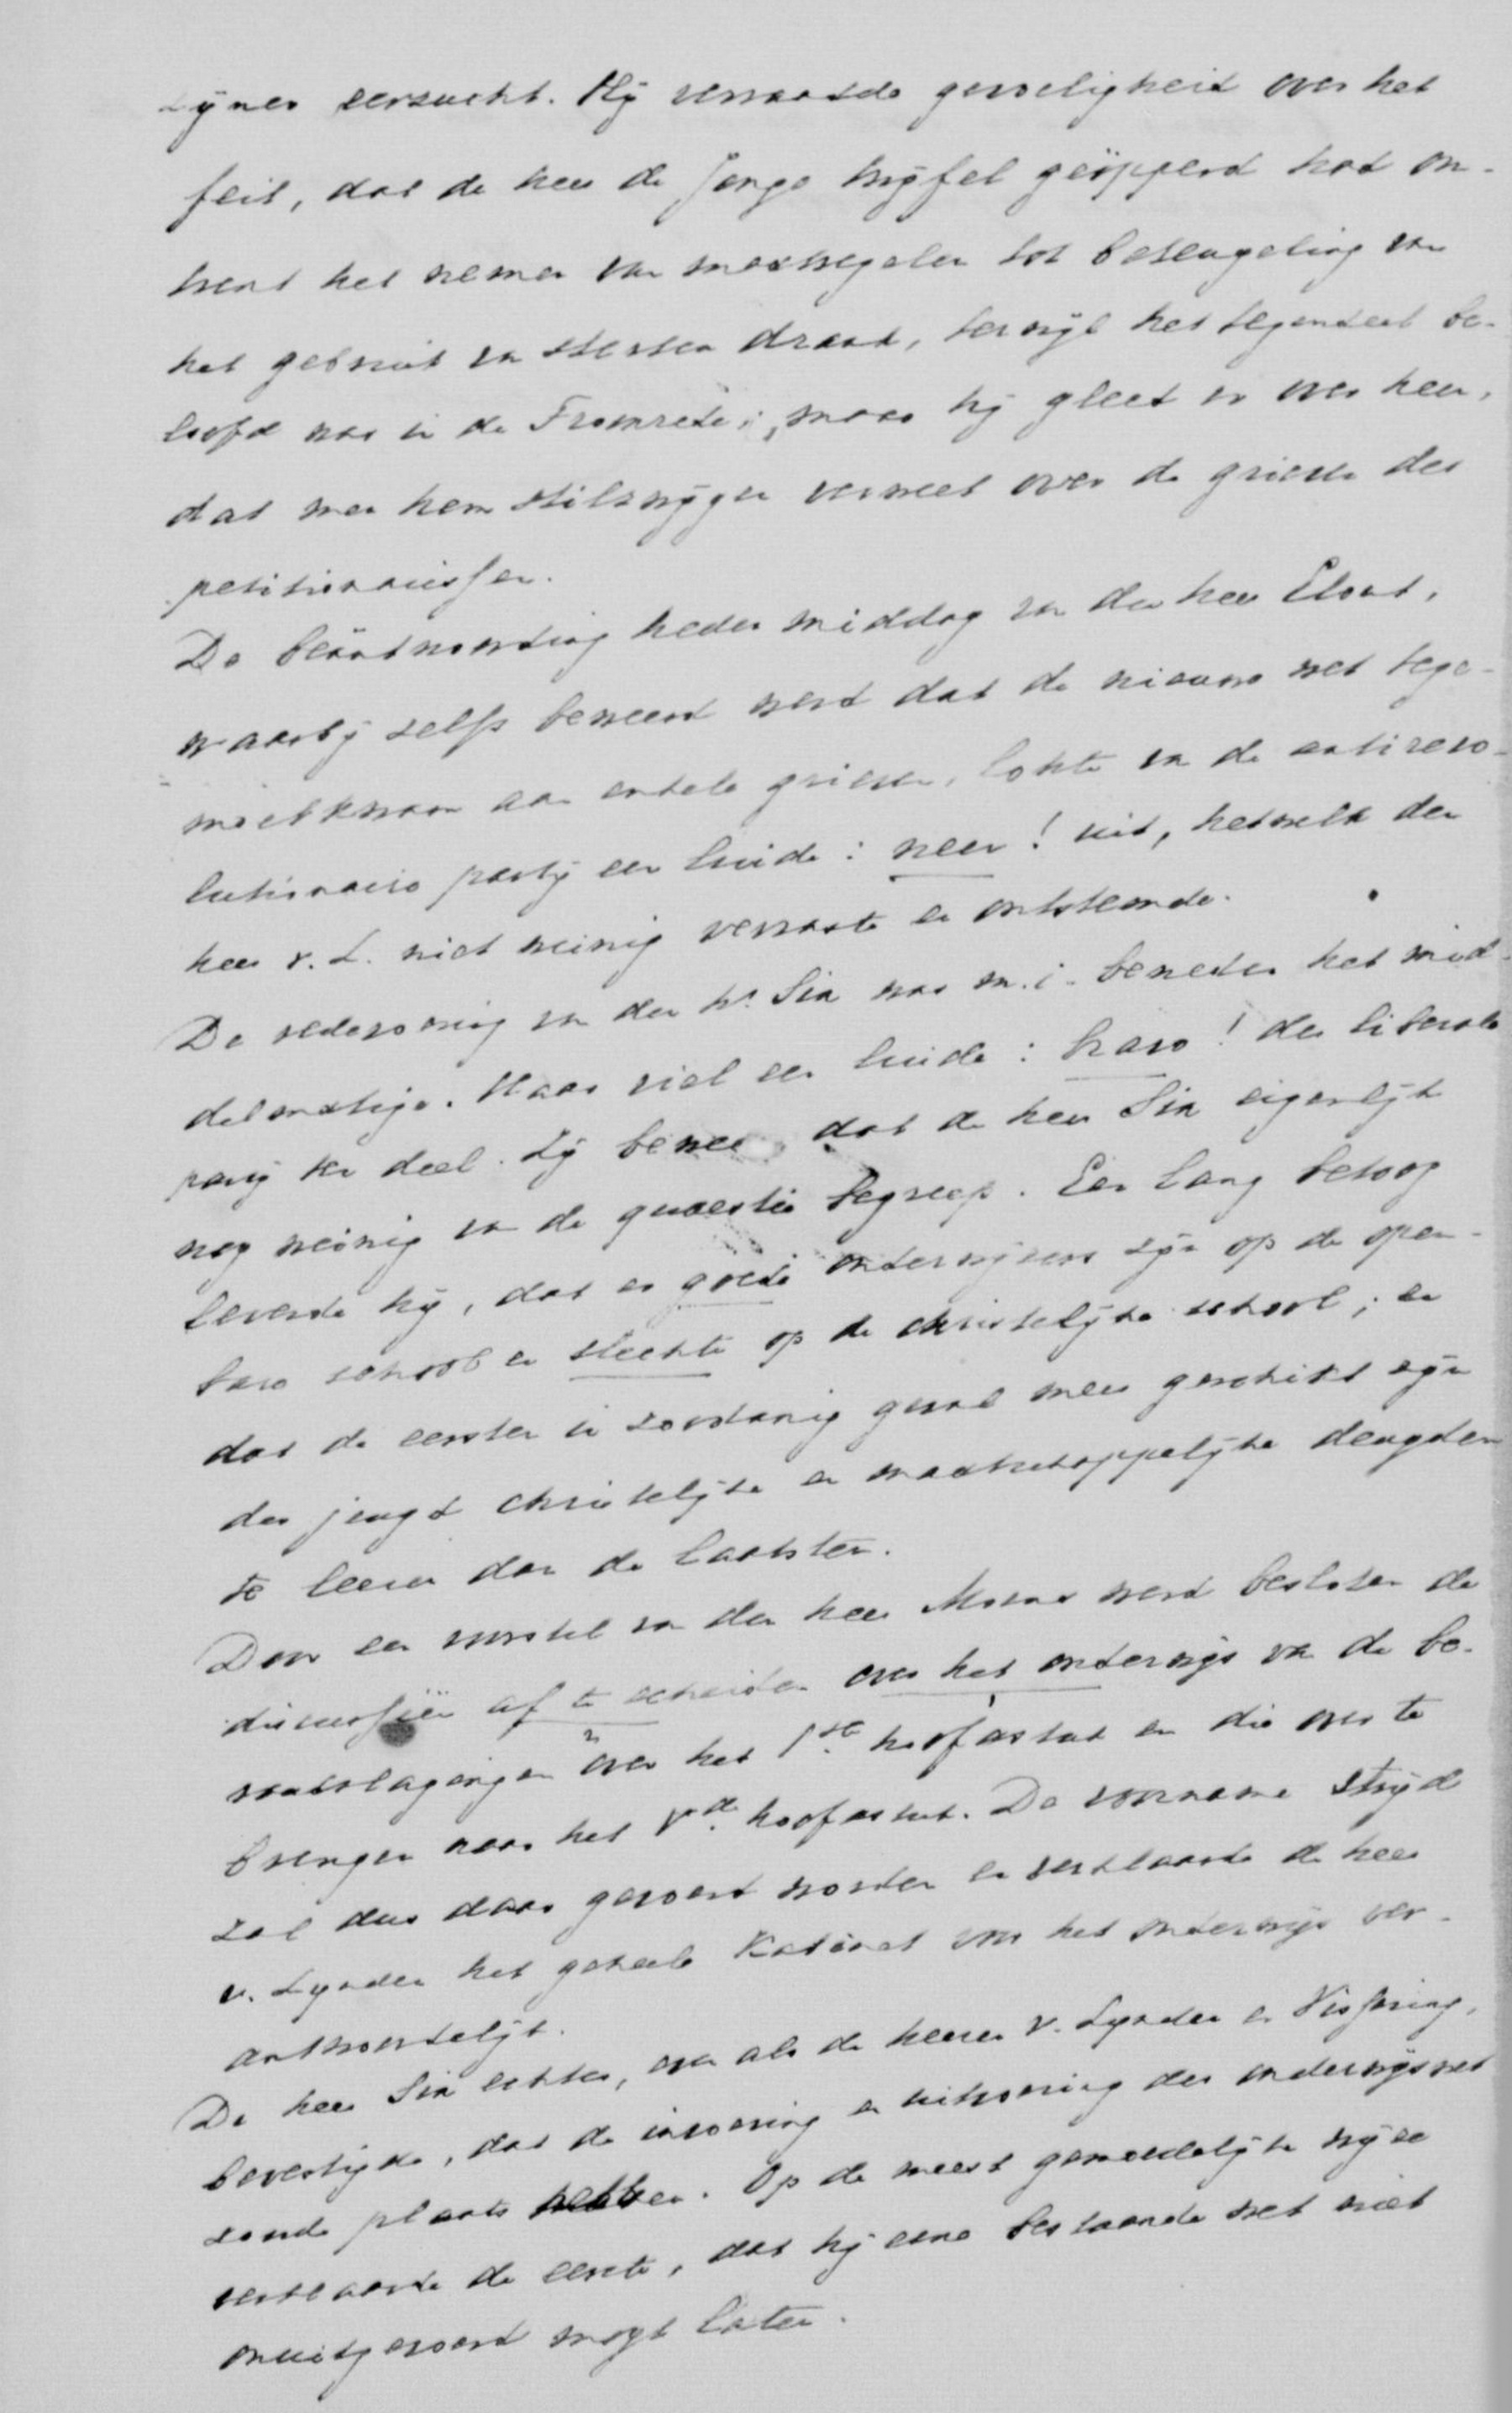 zijner eerzucht. Hij verraadde gevoeligheid over het
feit, dat de heer de Jonge twijfel geöpperd had om-
trent het nemen van maatregelen tot beteugeling van
het gebruik van sterken drank, terwijl het tegendeel be-
loofd was in de Troonrede; maar hij gleed er over heen,
dat men hem stilzwijgen verweet over de grieven der
petitionarissen.
De beäntwoording heden middag van den heer Elout,
waarbij zelfs beweerd werd dat de nieuwe wet tege-
moetkwam aan enkele grieven, lokte van de antirevo-
lutionaire partij een luide: neen! uit, hetwelk den
heer v. L. niet weinig verraste en ontstemde.
De redevoering van den hr. Six was m.i. beneden het mid-
delmatige. Haar viel een luide: bravo! der liberale
partij ten deel. Zij bewees, dat de heer Six eigenlijk
nog weinig van de quaestie begreep. Een lang betoog
leverde hij, dat er goede onderwijzers zijn op de open-
bare school en slechte op de christelijke school; en
dat de eersten in zoodanig geval meer geschikt zijn
der jeugd christelijke en maatschappelijke deugden
te leeren dan de laatsten.
Door een voorstel van den heer Moens werd besloten de
discussiën af te scheiden over het onderwijs van de be-
raadslagingen over het 1ste. hoofdstuk en die over te
brengen naar het Vde. hoofdstuk. De voorname strijd
zal dus daar gevoerd worden en verklaarde de heer
v. Lynden het geheele Kabinet voor het onderwijs ver-
antwoordelijk.
De heer Six echter, even als de heeren v. Lynden en Vissering,
bevestigde, dat de invoering en uitvoering der onderwijswet
zoude plaats hebben. Op de meest gemoedelijke wijze
verklaarde de eerste, dat hij eene bestaande wet niet
onuitgevoerd mogt laten.